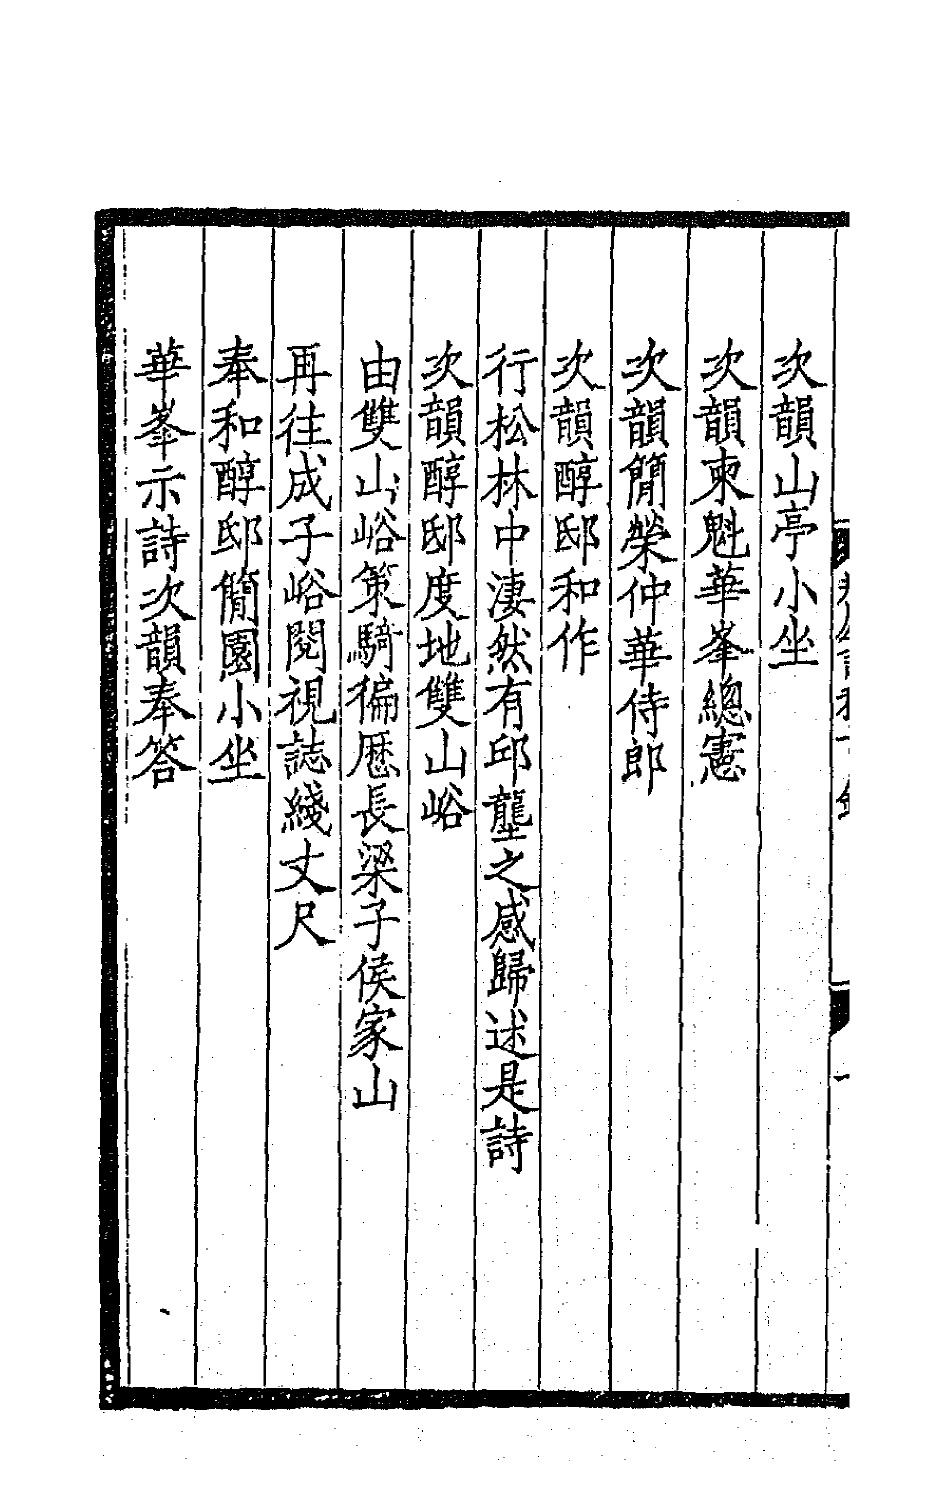 次韻山亭小坐
次韻東魁華峯總憲
次韻簡榮仲華侍郎
次韻醇邸和作
行松林中淒然有邱壟之感歸述是詩
次韻醇邸度地雙山峪
由雙山峪策騎徧歷長梁子侯家山
再往成子峪閱視誌綫丈尺
奉和醇邸蕑園小坐
華峯示詩次韻奉答